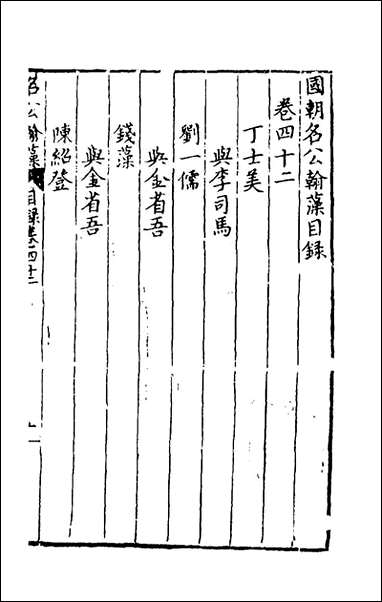 國朝名公翰藻目録
卷四十二
丁士美
與李司馬
劉一儒
與金省吾
錢藻
與金省吾
陳紹登
名公翰藻 目録卷四十二 一